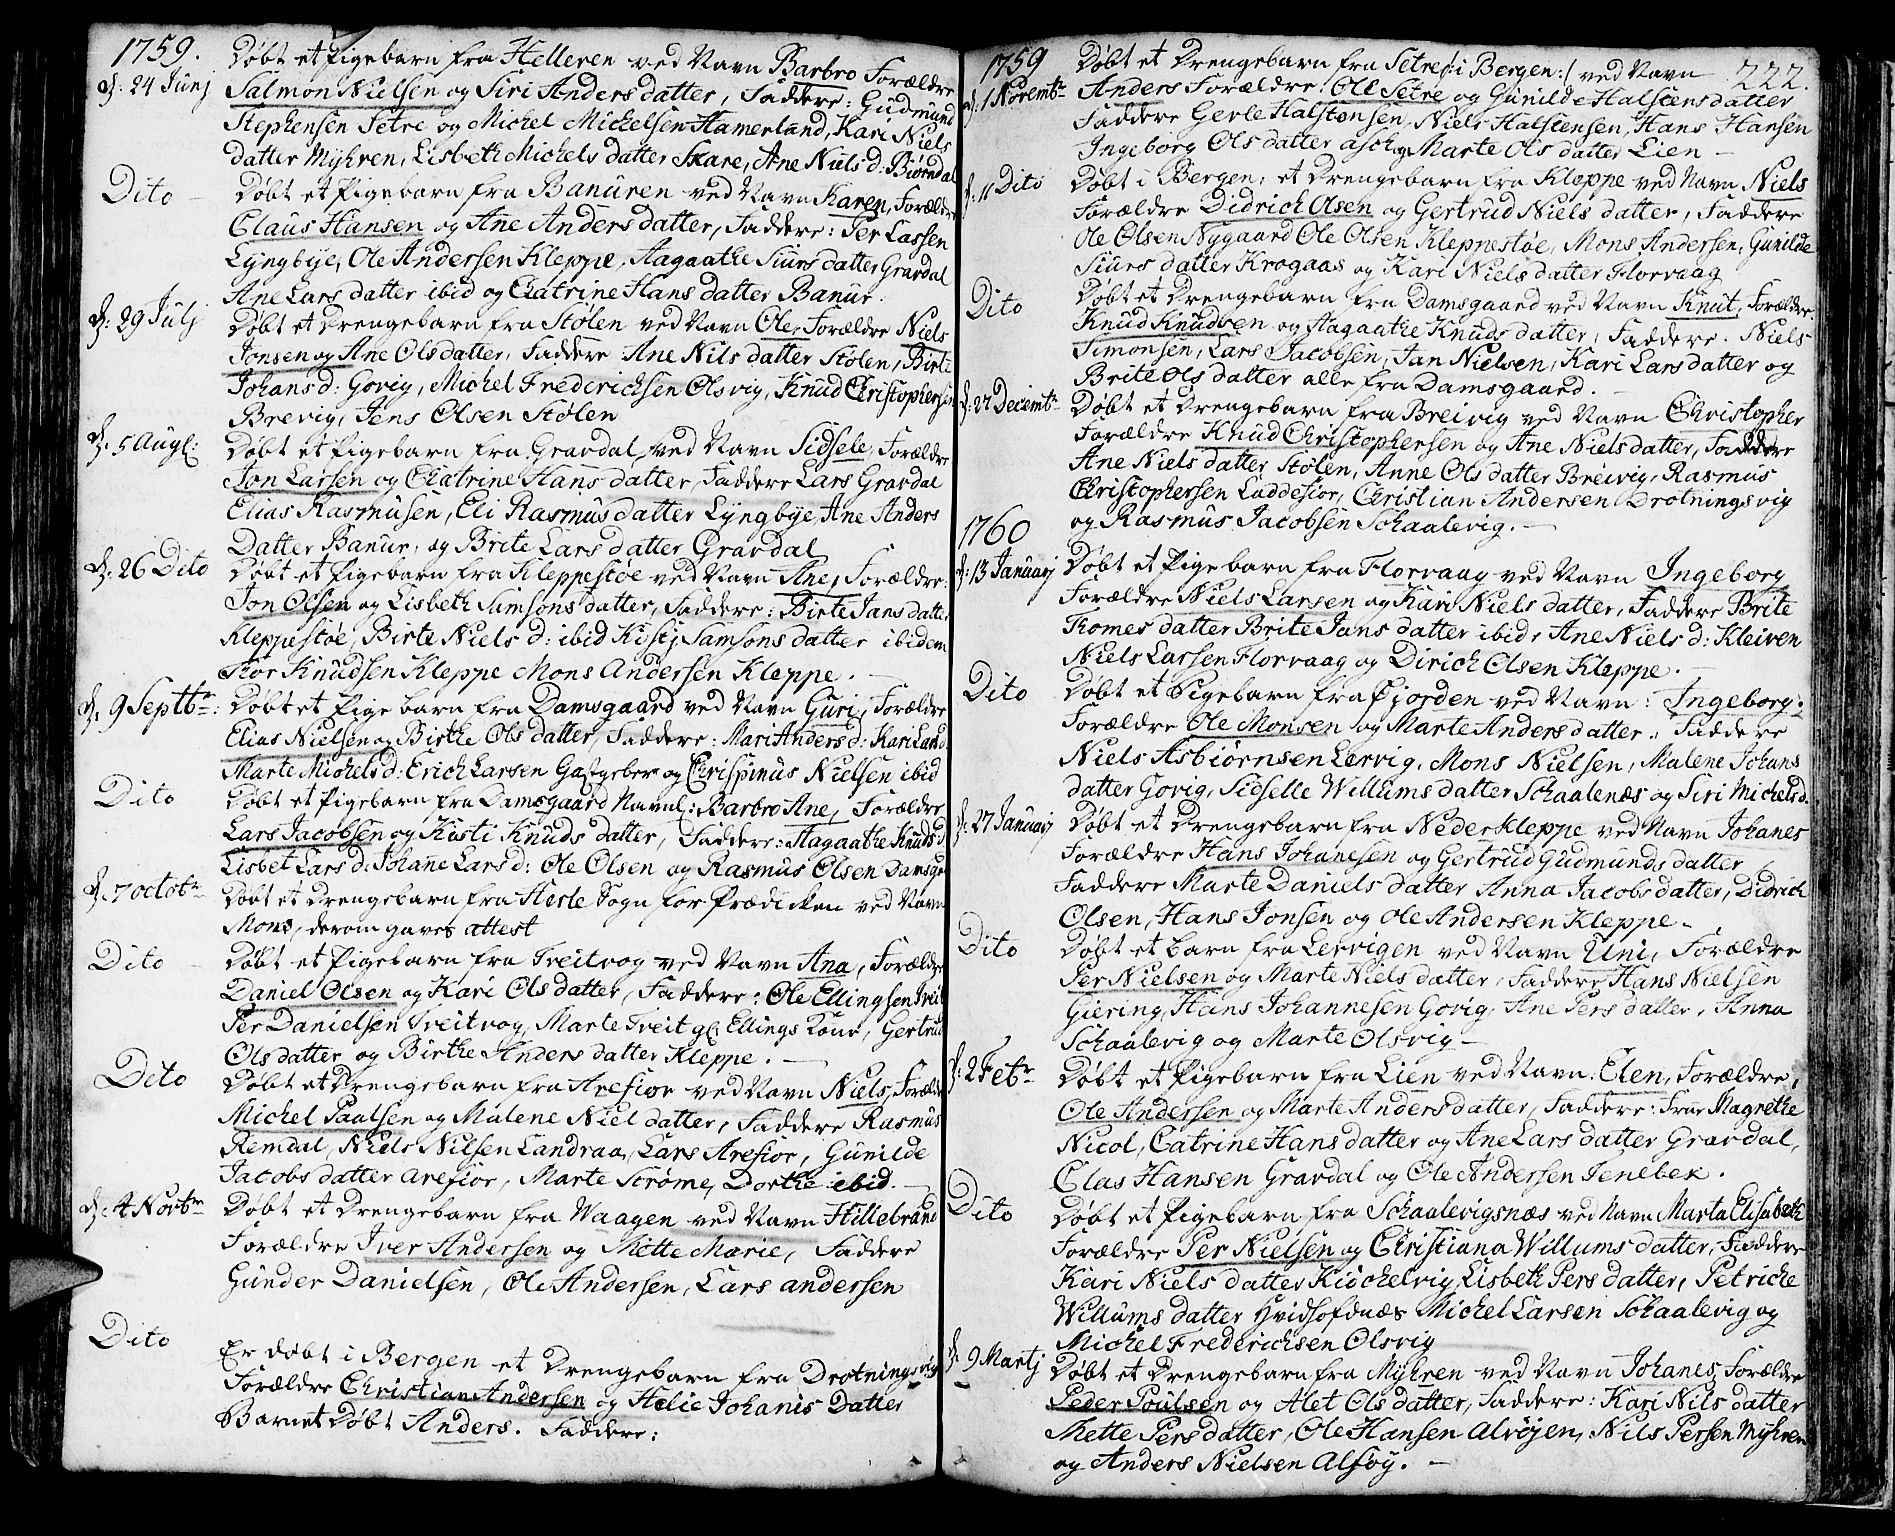 1759.
d: 24 Junj
Døbt et Pigebarn fra Helleren ved Navn Barbro Forældre
Salmon Nielsen og Siri Anders datter, Faddere: Gudmund
Stephensen Setre og Michel Michelsen Hamerland, Kari Niels
datter Myhren, Lisbeth Michels datter Skare, Ane Niels d: Biørndal
Dito
Døbt et Pigebarn fra Banuren ved Navn Karen, Forældre
Claus Hansen og Ane Anders datter, Faddere: Per Lassen
Lyngbye, Ole Andersen Kleppe, Aagaathe Siurs datter Gravdal
Ane Lars datter ibid og Catrine Hans datter Banur.
d: 29 Julj
Døbt et Drengebarn fra Stølen ved Navn Ole, Forældre Niels
Jonsen og Ane Olsdatter, Faddere Ane Nils datter Stølen, Birte
Johans d: Govig, Michel Frederichsen Olsvig, Knud Christophersen
Brevig, Jens Olsen Stølen
d: 5 Augl:
Døbt et Pigebarn fra Gravdal ved Navn Sidsele, Forældre
Jon Larsen og Catrine Hans datter, Faddere Lars Gravdal
Elias Rasmusen, Eli Rasmus datter Lyngbye, Ane Anders
Datter Banur, og Brite Lars datter Gravdal
d: 26 Dito
Døbt et Pigebarn fra Kleppestøe ved Navn Ane, Forældre:
Jon Olsen og Lisbeth Samsons datter, Faddere: Birte Jans datter
Kleppestøe, Birte Niels d: ibid Kistj Samsons datter ibidem
Thor Knudsen Kleppe Mons Andersen Kleppe.
d: 9 Septbr:
Døbt et Pige barn fra Damsgaard ved Navn Guri, Forældre
Elias Nielsen og Birthe Ols datter, Faddere: Mari Anders d: Kari Lars d.
Marte Michels d: Erich Larsen Gastgeber og Chrispinus Nielsen ibid
Dito
Døbt et Pigebarn fra Damsgaard Navnl: Barbro Ane, Forældre
Lars Jacobsen og Kirsti Knuds datter, Faddere: Aagaathe Knuds d
Lisbet Lars d: Johane Lars d: Ole Olsen og Rasmus Olsen Damsge
d: 7 octobr
Døbt et Drengebarn fra Herle Sogn for Prædicken ved Navn
Mons, derom gaves attest
Dito
Døbt et Pigebarn fra Treitvog ved Navn Ana, Forældre
Daniel Olsen og Kari Olsdatter, Faddere: Ole Ellingsen Treit
Per Danielsen Treitvog, Marte Treit gl Ellings Kone, Gertrud
Olsdatter og Birthe Anders datter Kleppe.
Dito
Døbt et Drengebarn fra Arefior ved Navn Niels, Forældre
Michel Paalsen og Malene Niel datter, Faddere Rasmus
Remdal, Niels Nilsen Landraa, Lars Arefior, Gunilde
Jacobs datter Arefior, Marte Strøme, Dorthe ibid.
d: 4 Novbr
Døbt et Drengebarn fra Waagen ved Navn Hillebrand
Forældre Iver Andersen og Mette Marie, Faddere
Gunder Danielsen, Ole Andersen, Lars andersen
Dito
Er døbt i Bergen et Drengebarn fra Drotningsvig
Forældre Christian Andersen og Helie Johanis Datter
Barnet Døbt Anders. Faddere:
1759
222.
d. 1 Novembr
Døbt et Drengebarn fra Setre /: i Bergen :/ ved Navn
Anders Forældre: Ole Setre og Gunilde Halstens datter
Faddere Gerle Halstensen, Niels Halstensen, Hans Hansen
Ingeborg Ols datter asch og Marte Ols datter Lien
d: 11 Dito
Døbt i Bergen, et Drengebarn fra Kleppe ved Navn Niels
Forældre Didrich Olsen og Gertrud Niels datter, Faddere
Ole Olsen Nygaard Ole Olsen Kleppestøe, Mons Andersen, Gunilde
Siurs datter Krogaas og Kari Niels datter Florvaag
Dito
Døbt et Drengebarn fra Damsgaard ved Navn Knut, Forældre
Knud Knudsen og Aagaathe Knuds datter, Faddere. Niels
Simonsen, Lars Jacobsen, Jan Nielsen, Kari Lars datter og
Brite Ols datter alle fra Damsgaard.
d: 27 Decembr
Døbt et Drengebarn fra Breivig ved Navn Christopher
Forældre Knud Christophersen og Ane Nielsdatter, Faddere
Ane Niels datter Stølen, Anne Ols datter Breivig, Rasmus
Christophersen Laddefior, Christian Andersen Drotningsvig
og Rasmus Jacobsen Schaalevig.
1760
d: 13 Januarj
Døbt et Pige barn fra Florvaag ved Navn Ingeborg
Forældre Niels Larsen og Kari Niels datter, Faddere Brite
Thomes datter Brite Jans datter ibid, Ane Niels d: Kleiven
Niels Larsen Florvaag og Dirich Olsen Kleppe.
Dito
Døbt et Pigebarn fra Fjorden ved Navn: Ingeborg.
Forældre Ole Monsen og Marte Anders datter. Faddere
Niels Asbiørnsen Lervig, Mons Nielsen, Malene Johans
datter Govig, Sidselle Willums datter Schaalenæs og Siri Michels d.
d: 27 Januarj
Døbt et Drengebarn fra Nederkleppe ved Navn Johanes
Forældre Hans Johanesen og Gertrud Gudmunds datter
Faddere Marte Daniels datter Anna Jacobs datter, Didrich
Olsen, Hans Jonsen og Ole Andersen Kleppe.
Dito
Døbt et Barn fra Lervigen ved Navn Uni, Forældre
Per Nielsen og Marte Niels datter, Faddere Hans Nielsen
Giering, Hans Johannesen Govig, Ane Pers datter, Anna
Schaalevig og Marte Olsvig
d: 2 Febr
Døbt et Pigebarn fra Lien ved Navn: Elen, Forældre,
Ole Andersen og Marte Anders datter, Faddere: Frue Magrethe
Nicol, Catrine Hans datter og Ane Lars datter Gravdal,
Clas Hansen Gravdal og Ole Andersen Tenebek.
Dito
Døbt et Pigebarn fra Schaalevigsnæs ved Navn Marta Elisabeth
Forældre Per Nielsen og Christiana Willums datter, Faddere
Kari Niels datter Kiøchelvig, Lisbeth Pers datter, Petriche
Willums datter Hvidhofdnæs Michel Larsen Schaalevig og
Michel Frederichsen Olsvig
d: 9 Martj
Døbt et Drengebarn fra Myhren ved Navn Johanes Forældre
Peder Poulsen og Alet Ols datter, Faddere: Kari Nils datter
Mette Pers datter, Ole Hansen Alvøjen, Nils Persen Myhren
og Anders Nielsen Alføy.